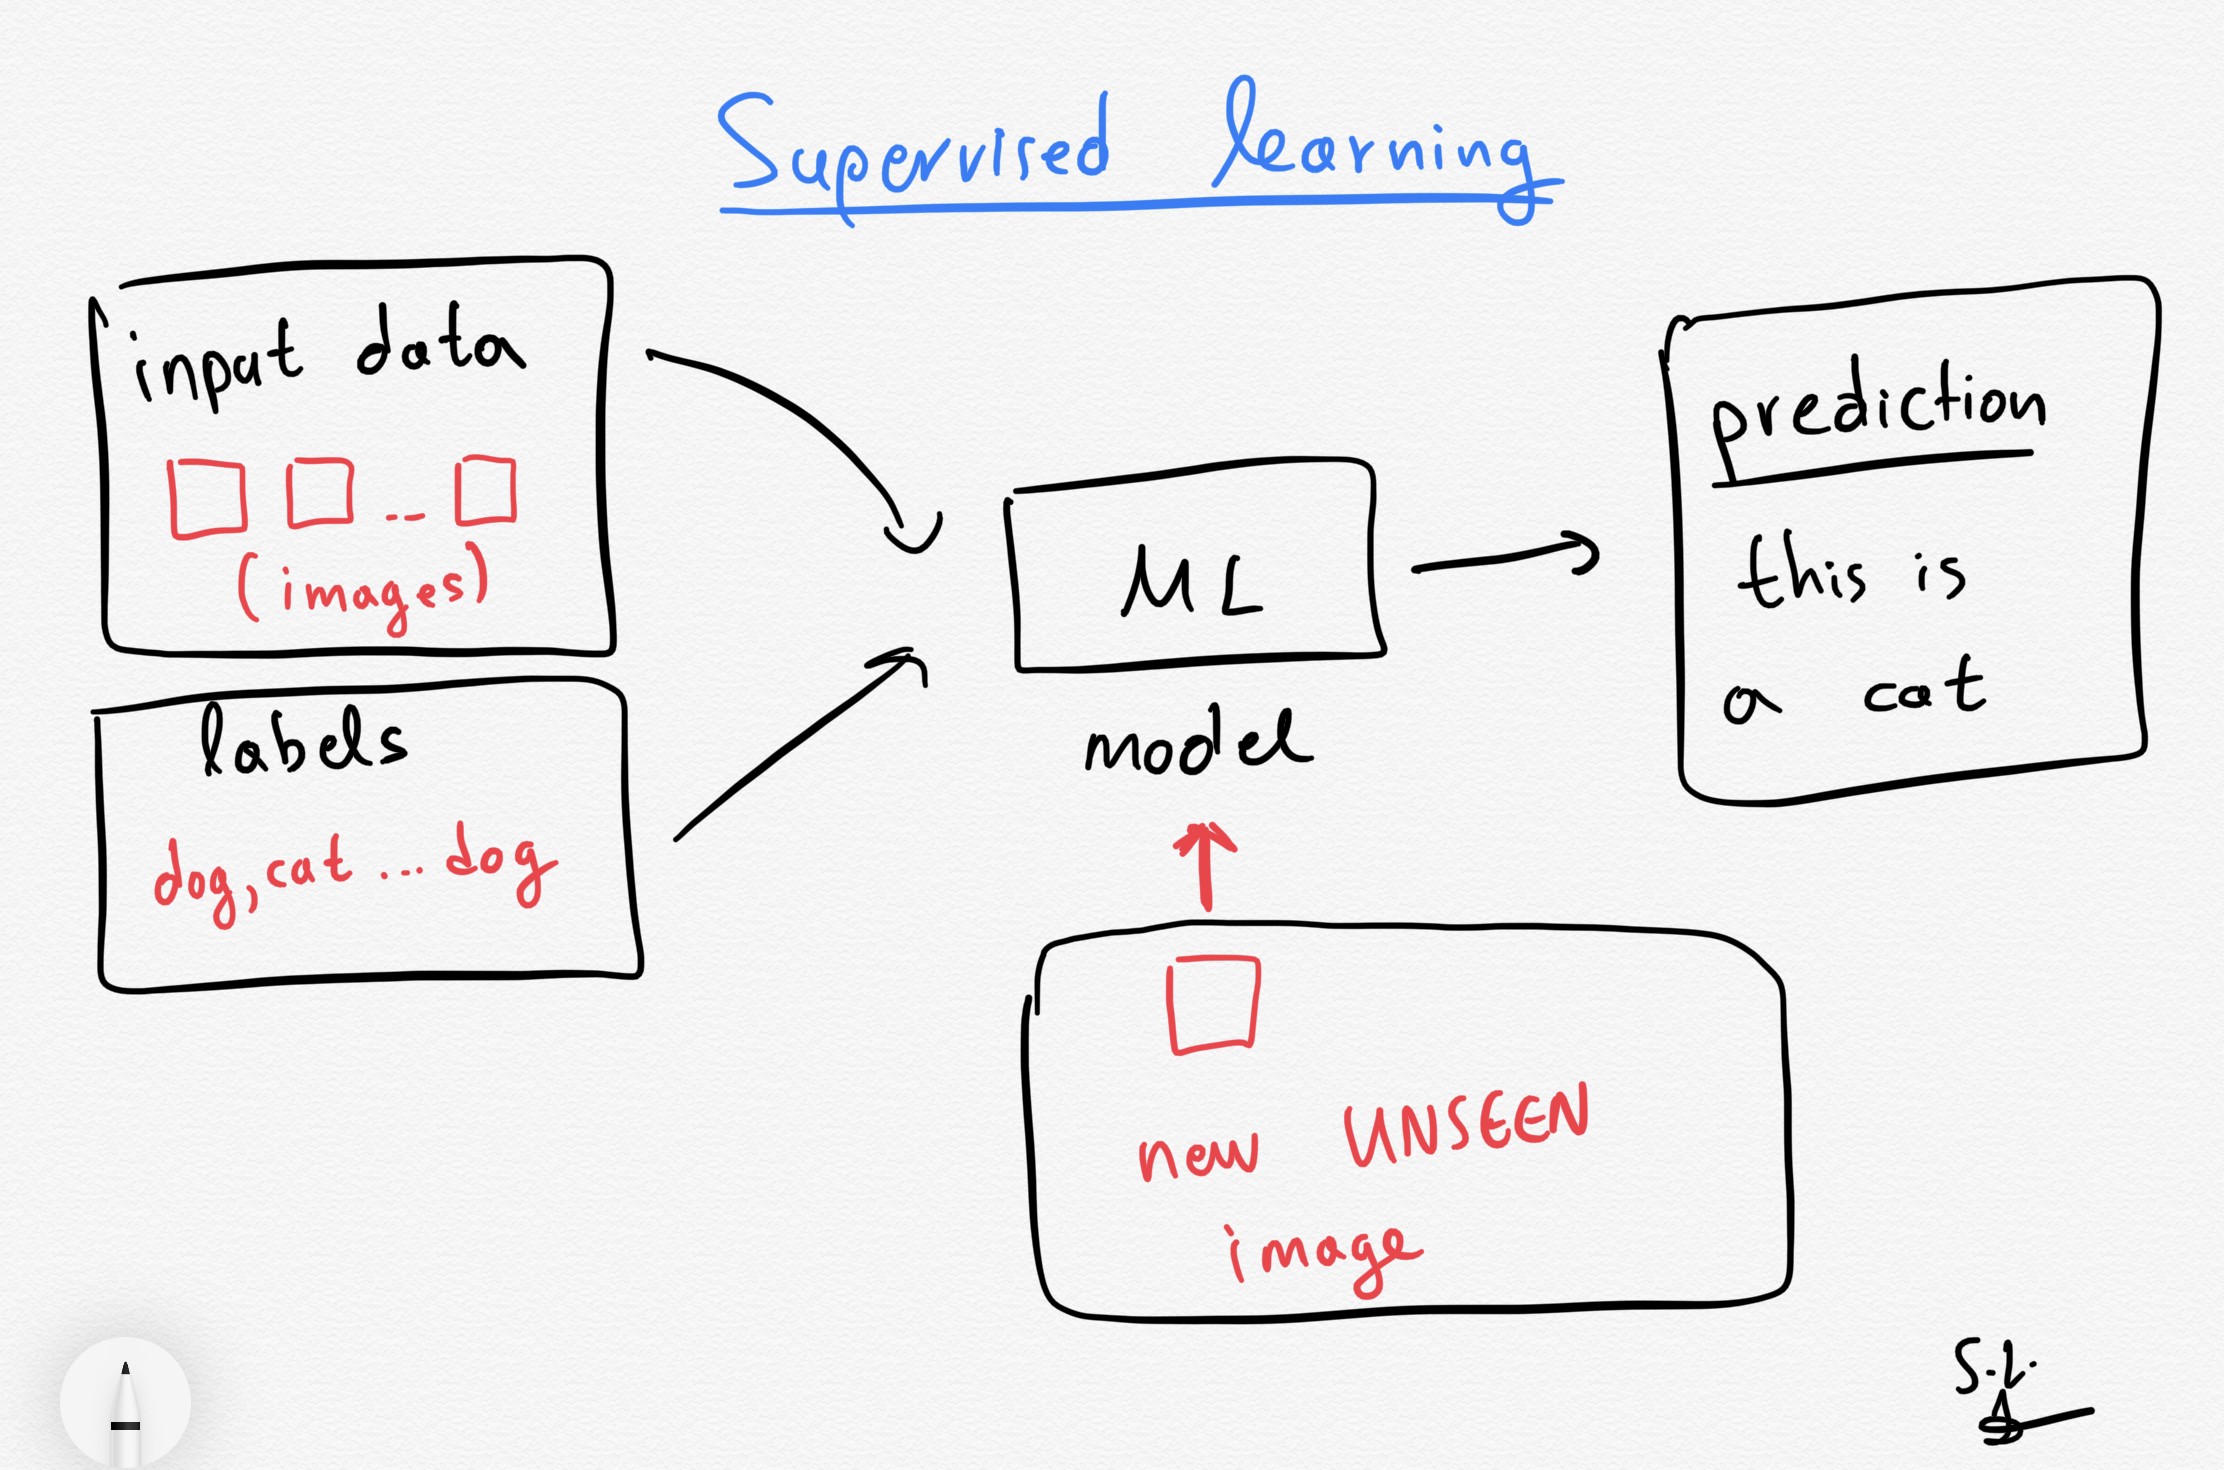 Supervised learning
input data
(images)
labels
dog, cat ... dog
ML
model
prediction
this is
a cat
new UNSEEN
image